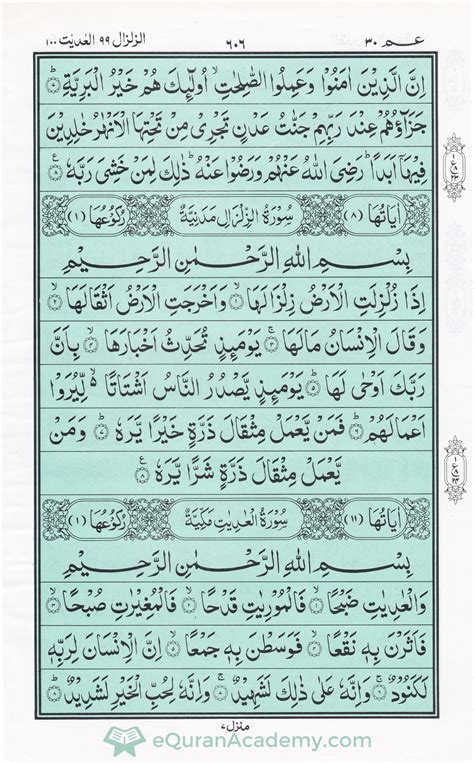 عـم ٣٠ ٦٠٦ الزلزال ٩٩ العٰديٰت ١٠٠
اِنَّ الَّذِيْنَ اٰمَنُوْا وَعَمِلُوا الصّٰلِحٰتِ ۙ اُولٰٓئِكَ هُمْ خَيْرُ الْبَرِيَّةِ ؕ﴿۷﴾
جَزَآؤُهُمْ عِنْدَ رَبِّهِمْ جَنّٰتُ عَدْنٍ تَجْرِيْ مِنْ تَحْتِهَا الْاَنْهٰرُ خٰلِدِيْنَ
فِيْهَاۤ اَبَدًا ؕ رَضِيَ اللّٰهُ عَنْهُمْ وَرَضُوْا عَنْهُ ؕ ذٰلِكَ لِمَنْ خَشِيَ رَبَّهٗ ﴿۸﴾ ع
اٰيَاتُهَا (٨) سُوْرَةُ الزِّلْزَالِ مَدَنِيَّةٌ رُكُوْعُهَا (١)
بِسْمِ اللّٰهِ الرَّحْمٰنِ الرَّحِيْمِ
اِذَا زُلْزِلَتِ الْاَرْضُ زِلْزَالَهَا ۙ﴿۱﴾ وَاَخْرَجَتِ الْاَرْضُ اَثْقَالَهَا ۙ﴿۲﴾
وَقَالَ الْاِنْسَانُ مَالَهَا ۚ﴿۳﴾ يَوْمَئِذٍ تُحَدِّثُ اَخْبَارَهَا ۙ﴿۴﴾ بِاَنَّ
رَبَّكَ اَوْحٰى لَهَا ؕ﴿۵﴾ يَوْمَئِذٍ يَّصْدُرُ النَّاسُ اَشْتَاتًا ۙ لِّيُرَوْا
اَعْمَالَهُمْ ؕ﴿۶﴾ فَمَنْ يَّعْمَلْ مِثْقَالَ ذَرَّةٍ خَيْرًا يَّرَهٗ ؕ﴿۷﴾ وَمَنْ
يَّعْمَلْ مِثْقَالَ ذَرَّةٍ شَرًّا يَّرَهٗ ﴿۸﴾ ع
اٰيَاتُهَا (١١) سُوْرَةُ الْعٰدِيٰتِ مَكِّيَّةٌ رُكُوْعُهَا (١)
بِسْمِ اللّٰهِ الرَّحْمٰنِ الرَّحِيْمِ
وَالْعٰدِيٰتِ ضَبْحًا ۙ﴿۱﴾ فَالْمُوْرِيٰتِ قَدْحًا ۙ﴿۲﴾ فَالْمُغِيْرٰتِ صُبْحًا ۙ﴿۳﴾
فَاَثَرْنَ بِهٖ نَقْعًا ۙ﴿۴﴾ فَوَسَطْنَ بِهٖ جَمْعًا ۙ﴿۵﴾ اِنَّ الْاِنْسَانَ لِرَبِّهٖ
لَكَنُوْدٌ ۚ﴿۶﴾ وَاِنَّهٗ عَلٰى ذٰلِكَ لَشَهِيْدٌ ۚ﴿۷﴾ وَاِنَّهٗ لِحُبِّ الْخَيْرِ لَشَدِيْدٌ ؕ﴿۸﴾
منزل ٧
eQuranAcademy.com